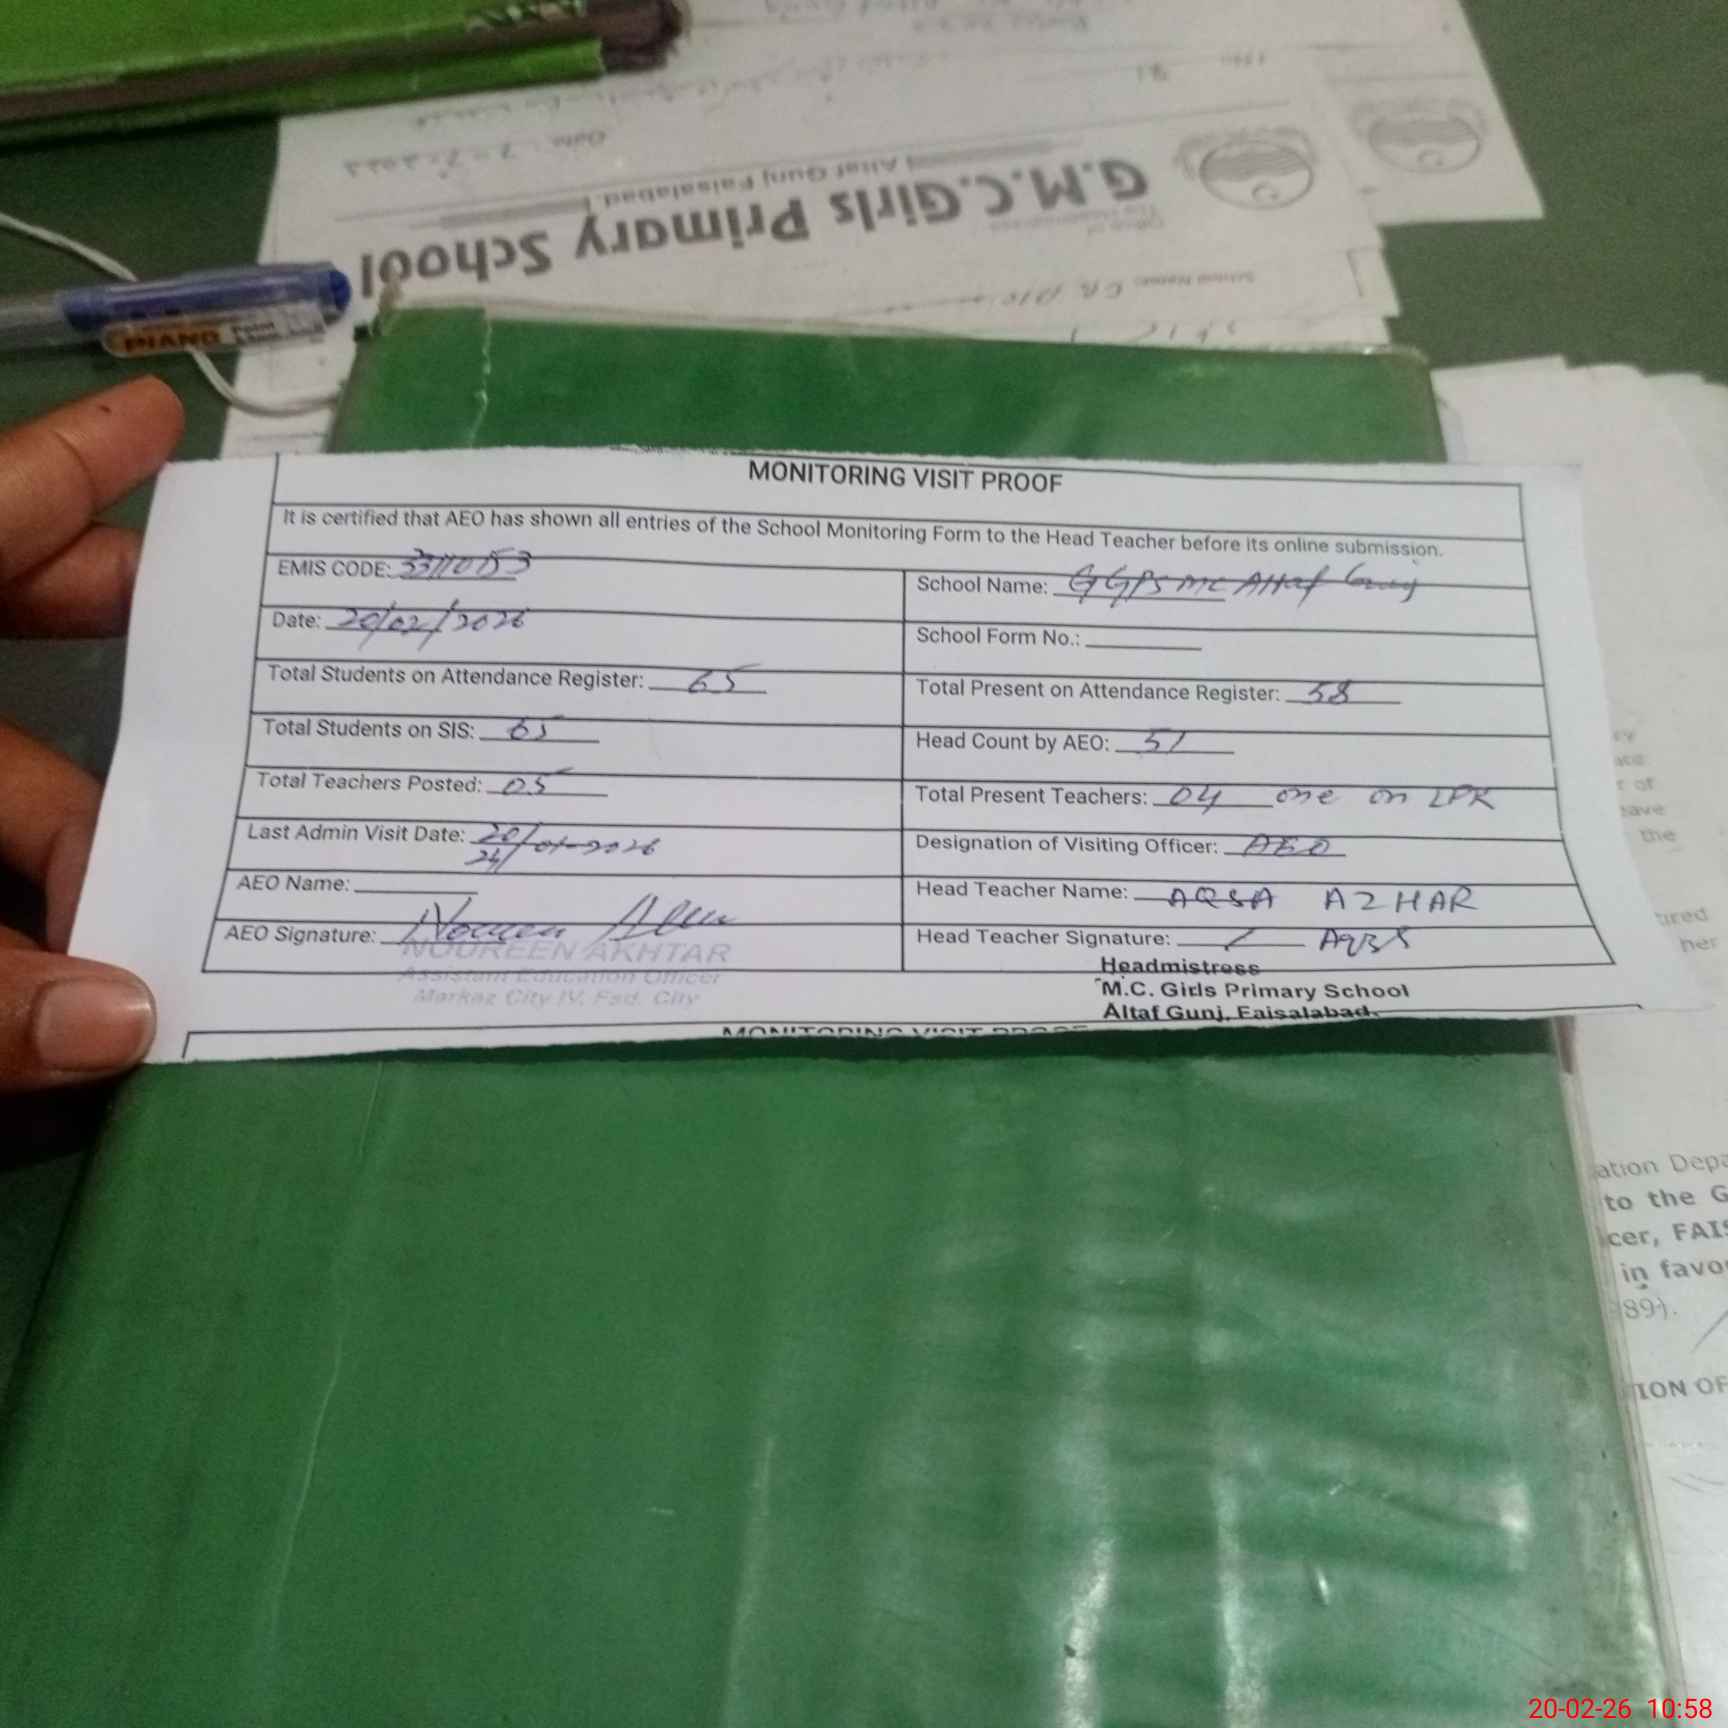 G.M.C.Girls Primary School
Altaf Gunj Faisalabad.
Date: 7-7-2022
School Name:
PIANO Point
MONITORING VISIT PROOF
It is certified that AEO has shown all entries of the School Monitoring Form to the Head Teacher before its online submission.
EMIS CODE: 33110153
School Name: GGPS MC Altaf Gunj
Date: 20/02/2026
School Form No.:
Total Students on Attendance Register: 65
Total Present on Attendance Register: 58
Total Students on SIS: 65
Head Count by AEO: 57
Total Teachers Posted: 05
Total Present Teachers: 04 one on LPR
Last Admin Visit Date: 20/01-2026
24/
Designation of Visiting Officer: AEO
AEO Name:
Head Teacher Name: AQSA AZHAR
AEO Signature: Noureen
Head Teacher Signature: Aqsa
NOUREEN AKHTAR
Assistant Education Officer
Markaz City IV, Fsd. City
Headmistress
M.C. Girls Primary School
Altaf Gunj, Faisalabad.
MONITORING VISIT PROOF
ave
the
ured
her
ation Depa
to the G
cer, FAIS
in favo
89).
ION OF
20-02-26 10:58